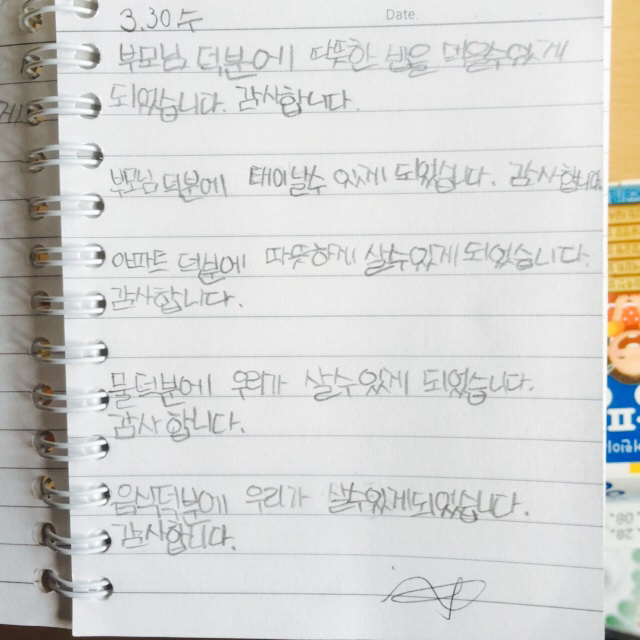 3.30 수
Date.
부모님 덕분에 따뜻한 밥을 먹을수있게
되었습니다. 감사합니다.
부모님 덕분에 태어날수 있게 되었습니다. 감사합니다.
아파트 덕분에 따뜻하게 살수있게 되었습니다.
감사합니다.
물덕분에 우리가 살수있게 되었습니다.
감사합니다.
음식덕분에 우리가 살수있게되었습니다.
감사합니다.